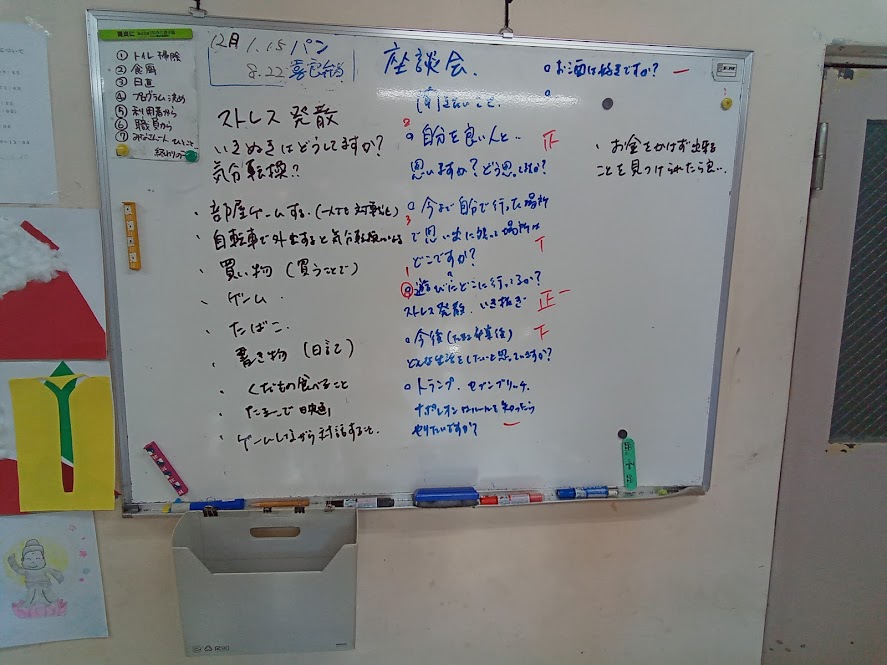 ① トイレ掃除
② 食器
③ 日直
④ プログラム決め
⑤ 利用者から
⑥ 職員から
⑦
終わりの
12月 1.15 パン
8.22
ストレス発散
いきぬきはどうしてますか?
気分転換??
・部屋ゲームする.(一人でも対戦など)
・自転車で外出すると気分転換になる
・買い物(買うことで)
・ゲーム.
・たばこ.
・書き物(日記)
・くだもの食べること
・たまーで映画
・ゲームしながら対話すること.
座談会.
2
○自分を良い人と.. 正
思いますか?どう思
○今まで自分で行った場所
3
で思い出に残って場所は
どこですか? T
1
○遊びにどこに行ってるか?
ストレス発散.いき抜き 正一
○今後
どんな生活をしたいと思っていますか?
○トランプ.セブンブリッヂ.
ナポレオン ルールを知ったら
やりたいですか? 一
○お酒は好きですか? 一
○
・お金をかけず出来る
ことを見つけられたら良い.